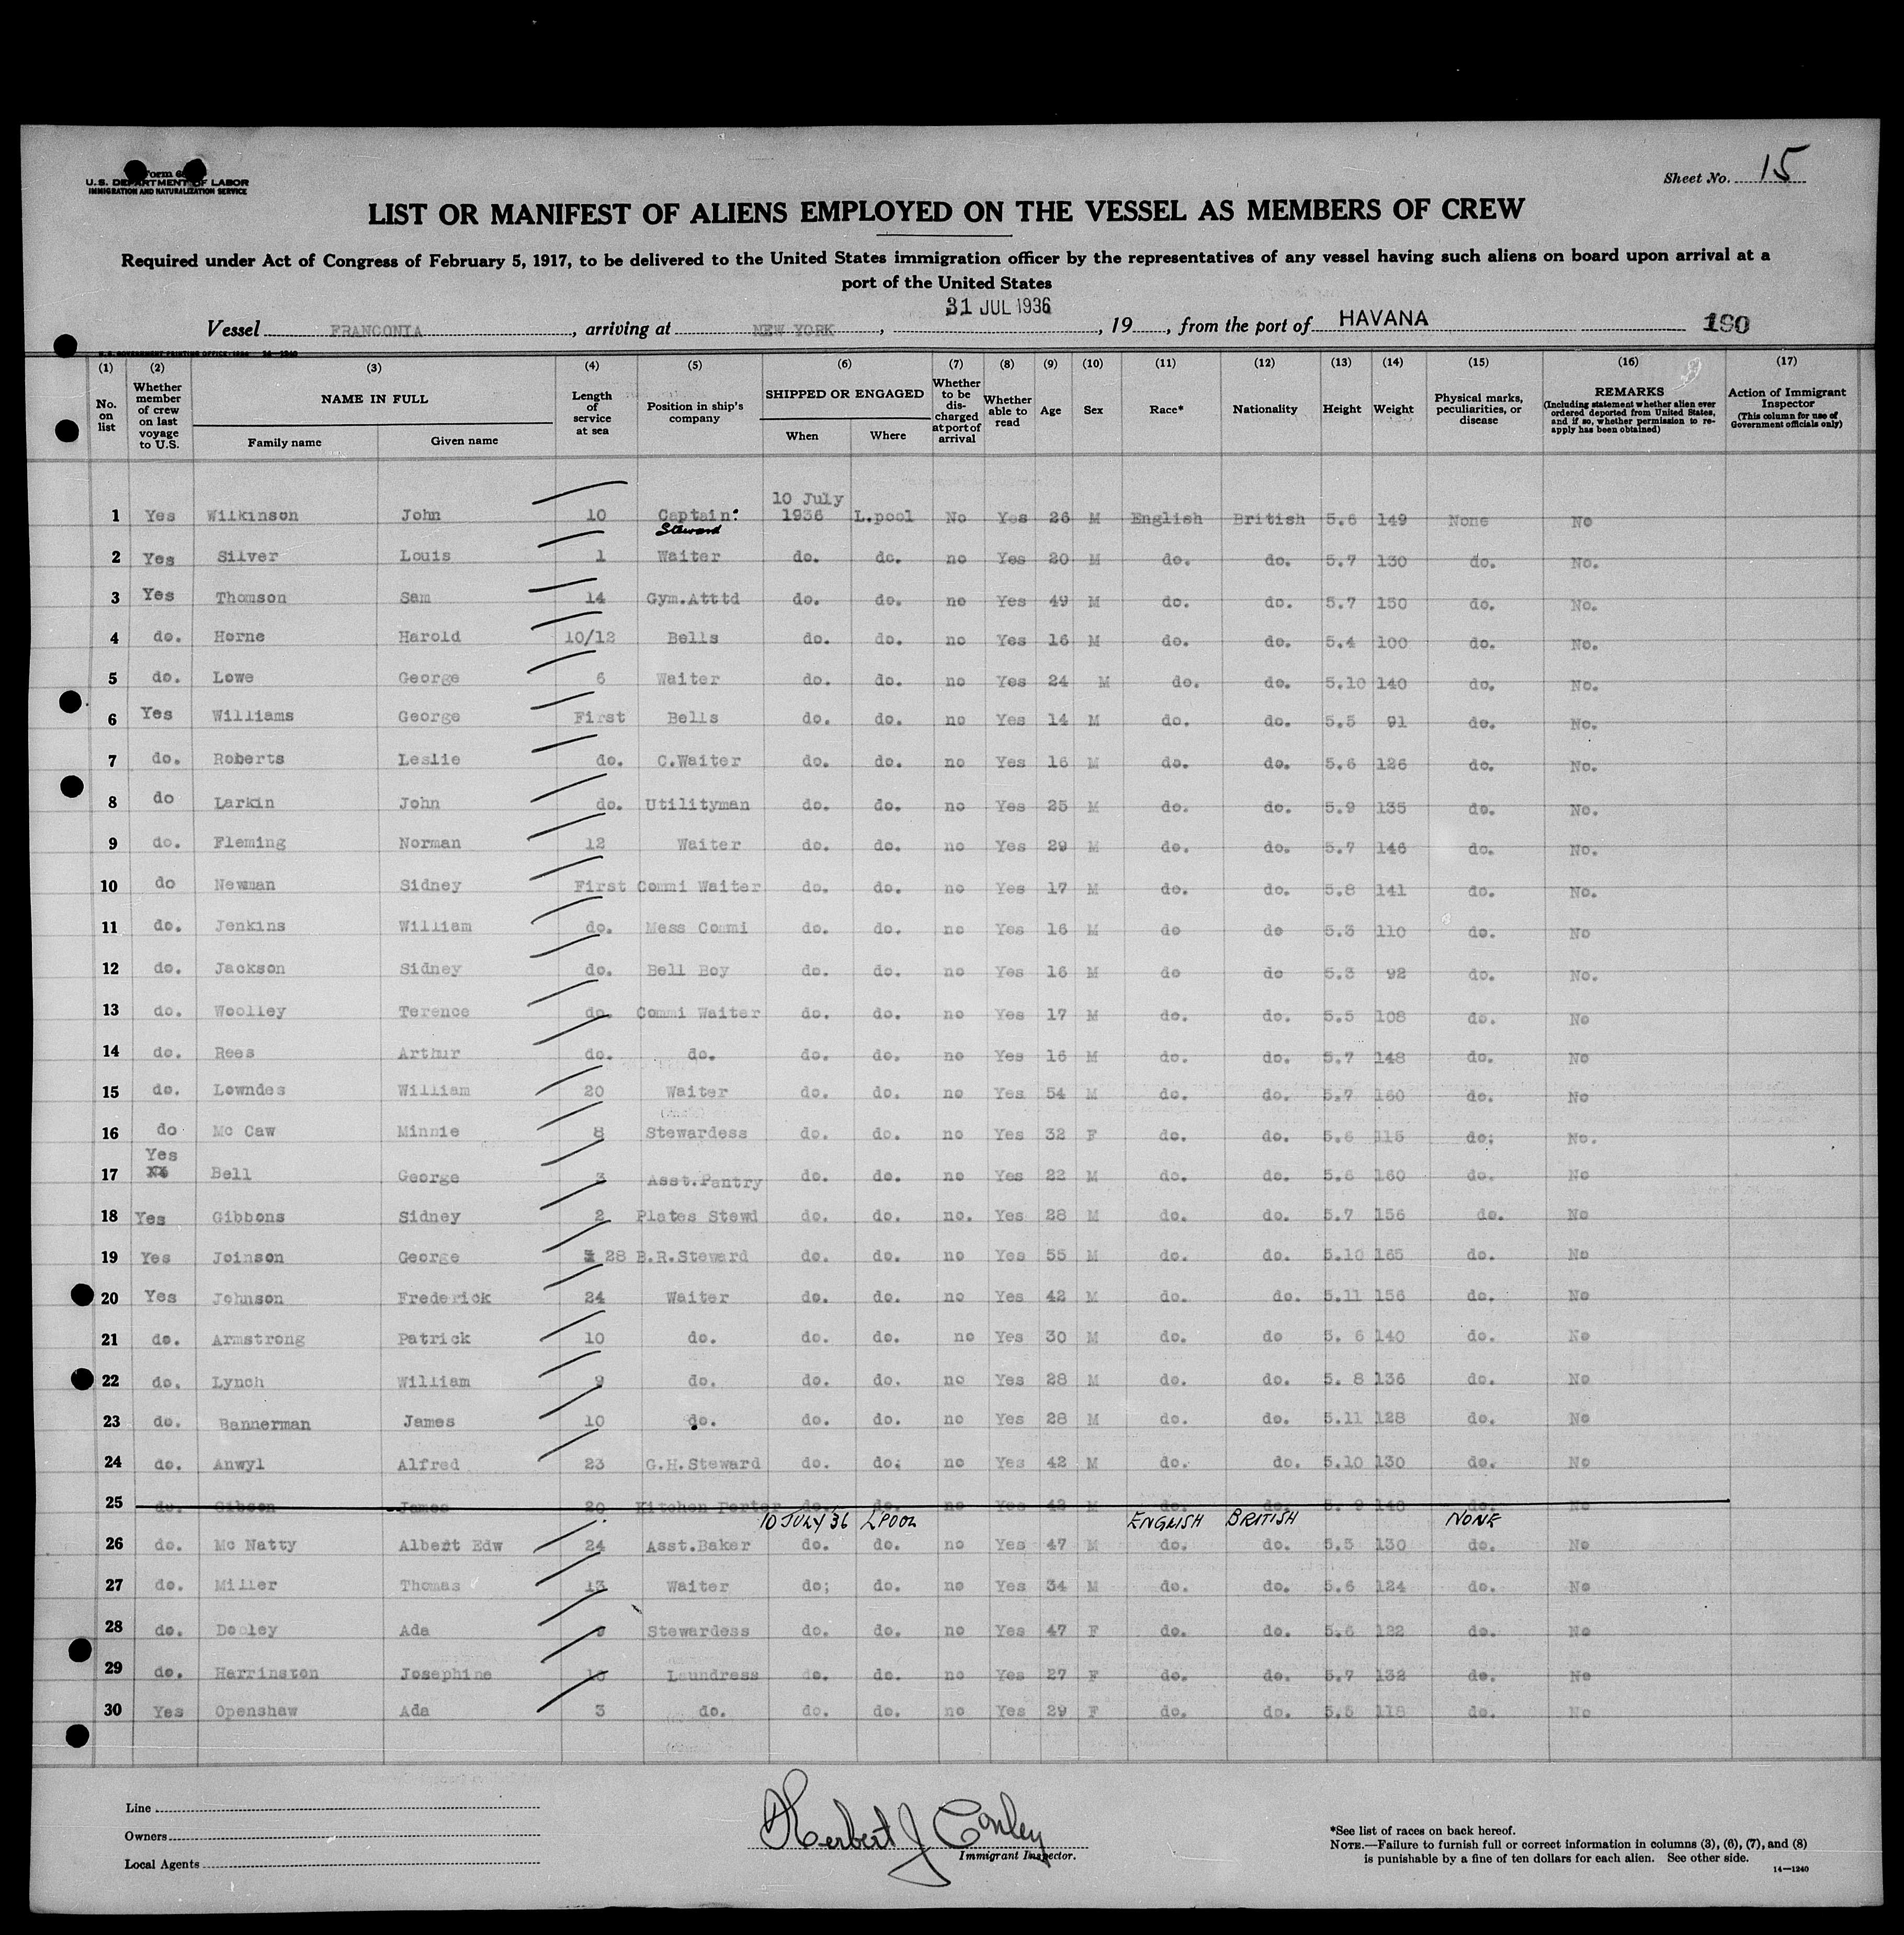 Form 6
U.S. DEPARTMENT OF LABOR
IMMIGRATION AND NATURALIZATION SERVICE
Sheet No. 15
LIST OR MANIFEST OF ALIENS EMPLOYED ON THE VESSEL AS MEMBERS OF CREW
Required under Act of Congress of February 5, 1917, to be delivered to the United States immigration officer by the representatives of any vessel having such aliens on board upon arrival at a
port of the United States
31 JUL 1936
Vessel FRANCONIA, arriving at NEW YORK, , 19 , from the port of HAVANA 190
(1) (2) (3) (4) (5) (6) (7) (8) (9) (10) (11) (12) (13) (14) (15) (16) (17)
No. on list Whether member of crew on last voyage to U.S. NAME IN FULL Family name Given name Length of service at sea Position in ship's company SHIPPED OR ENGAGED When Where Whether to be discharged at port of arrival Whether able to read Age Sex Race* Nationality Height Weight Physical marks, peculiarities, or disease REMARKS (Including statement whether alien ever ordered deported from United States, and if so, whether permission to reapply has been obtained) Action of Immigrant Inspector (This column for use of Government officials only)
10 July
1 Yes Wilkinson John 10 Captain: 1936 L.pool No Yes 26 M English British 5.6 149 None No
Steward
2 Yes Silver Louis 1 Waiter do. do. no Yes 20 M do. do. 5.7 130 do. No.
3 Yes Thomson Sam 14 Gym.Atttd do. do. no Yes 49 M do. do. 5.7 150 do. No.
4 do. Horne Harold 10/12 Bells do. do. no Yes 16 M do. do. 5.4 100 do. No.
5 do. Lowe George 6 Waiter do. do. no Yes 24 M do. do. 5.10 140 do. No.
6 Yes Williams George First Bells do. do. no Yes 14 M do. do. 5.5 91 do. No.
7 do. Roberts Leslie do. C.Waiter do. do. no Yes 16 M do. do. 5.6 126 do. No.
8 do Larkin John do. Utilityman do. do. no Yes 25 M do. do. 5.9 135 do. No.
9 do. Fleming Norman 12 Waiter do. do. no Yes 29 M do. do. 5.7 146 do. No.
10 do Newman Sidney First Commi Waiter do. do. no Yes 17 M do. do. 5.8 141 do. No.
11 do. Jenkins William do. Mess Commi do. do. no Yes 16 M do do 5.3 110 do. No
12 do. Jackson Sidney do. Bell Boy do. do. no Yes 16 M do do 5.3 92 do. No.
13 do. Woolley Terence do. Commi Waiter do. do. no Yes 17 M do. do. 5.5 108 do. No
14 do. Rees Arthur do. do. do. do. no Yes 16 M do. do. 5.7 148 do. No
15 do. Lowndes William 20 Waiter do. do. no Yes 54 M do. do. 5.7 160 do. No
16 do Mc Caw Minnie 8 Stewardess do. do. no Yes 32 F do. do. 5.6 115 do; No.
Yes
17 Bell George 3 Asst.Pantry do. do. no Yes 22 M do. do. 5.6 160 do. No
18 Yes Gibbons Sidney 2 Plates Stewd do. do. no. Yes 28 M do. do. 5.7 156 do. No
19 Yes Joinson George 28 B.R.Steward do. do. no Yes 55 M do. do. 5.10 165 do. No
20 Yes Johnson Frederick 24 Waiter do. do. no Yes 42 M do. do. 5.11 156 do. No
21 do. Armstrong Patrick 10 do. do. do. no Yes 30 M do. do 5. 6 140 do. No
22 do. Lynch William 9 do. do. do. no Yes 28 M do. do. 5. 8 136 do. No
23 do. Bannerman James 10 do. do. do. no Yes 28 M do. do. 5.11 128 do. No
24 do. Anwyl Alfred 23 G.H.Steward do. do; no Yes 42 M do. do. 5.10 130 do. No
25 do. Gibson James 20 Kitchen Porter do. do. no Yes 42 M do. do. 5. 9 140 do. No
10 JULY 36 LPOOL ENGLISH BRITISH NONE
26 do. Mc Natty Albert Edw 24 Asst.Baker do. do. no Yes 47 M do. do. 5.5 130 do. No
27 do. Miller Thomas 13 Waiter do; do. no Yes 34 M do. do. 5.6 124 do. No
28 do. Dooley Ada Stewardess do. do. no Yes 47 F do. do. 5.6 122 do. No
29 do. Harrinston Josephine 10 Laundress do. do. no Yes 27 F do. do. 5.7 132 do. No
30 Yes Openshaw Ada 3 do. do. do. no Yes 29 F do. do. 5.5 118 do. No
Line
Owners
Local Agents
Herbert J Conley
Immigrant Inspector.
*See list of races on back hereof.
NOTE.—Failure to furnish full or correct information in columns (3), (6), (7), and (8)
is punishable by a fine of ten dollars for each alien. See other side.
14—1240